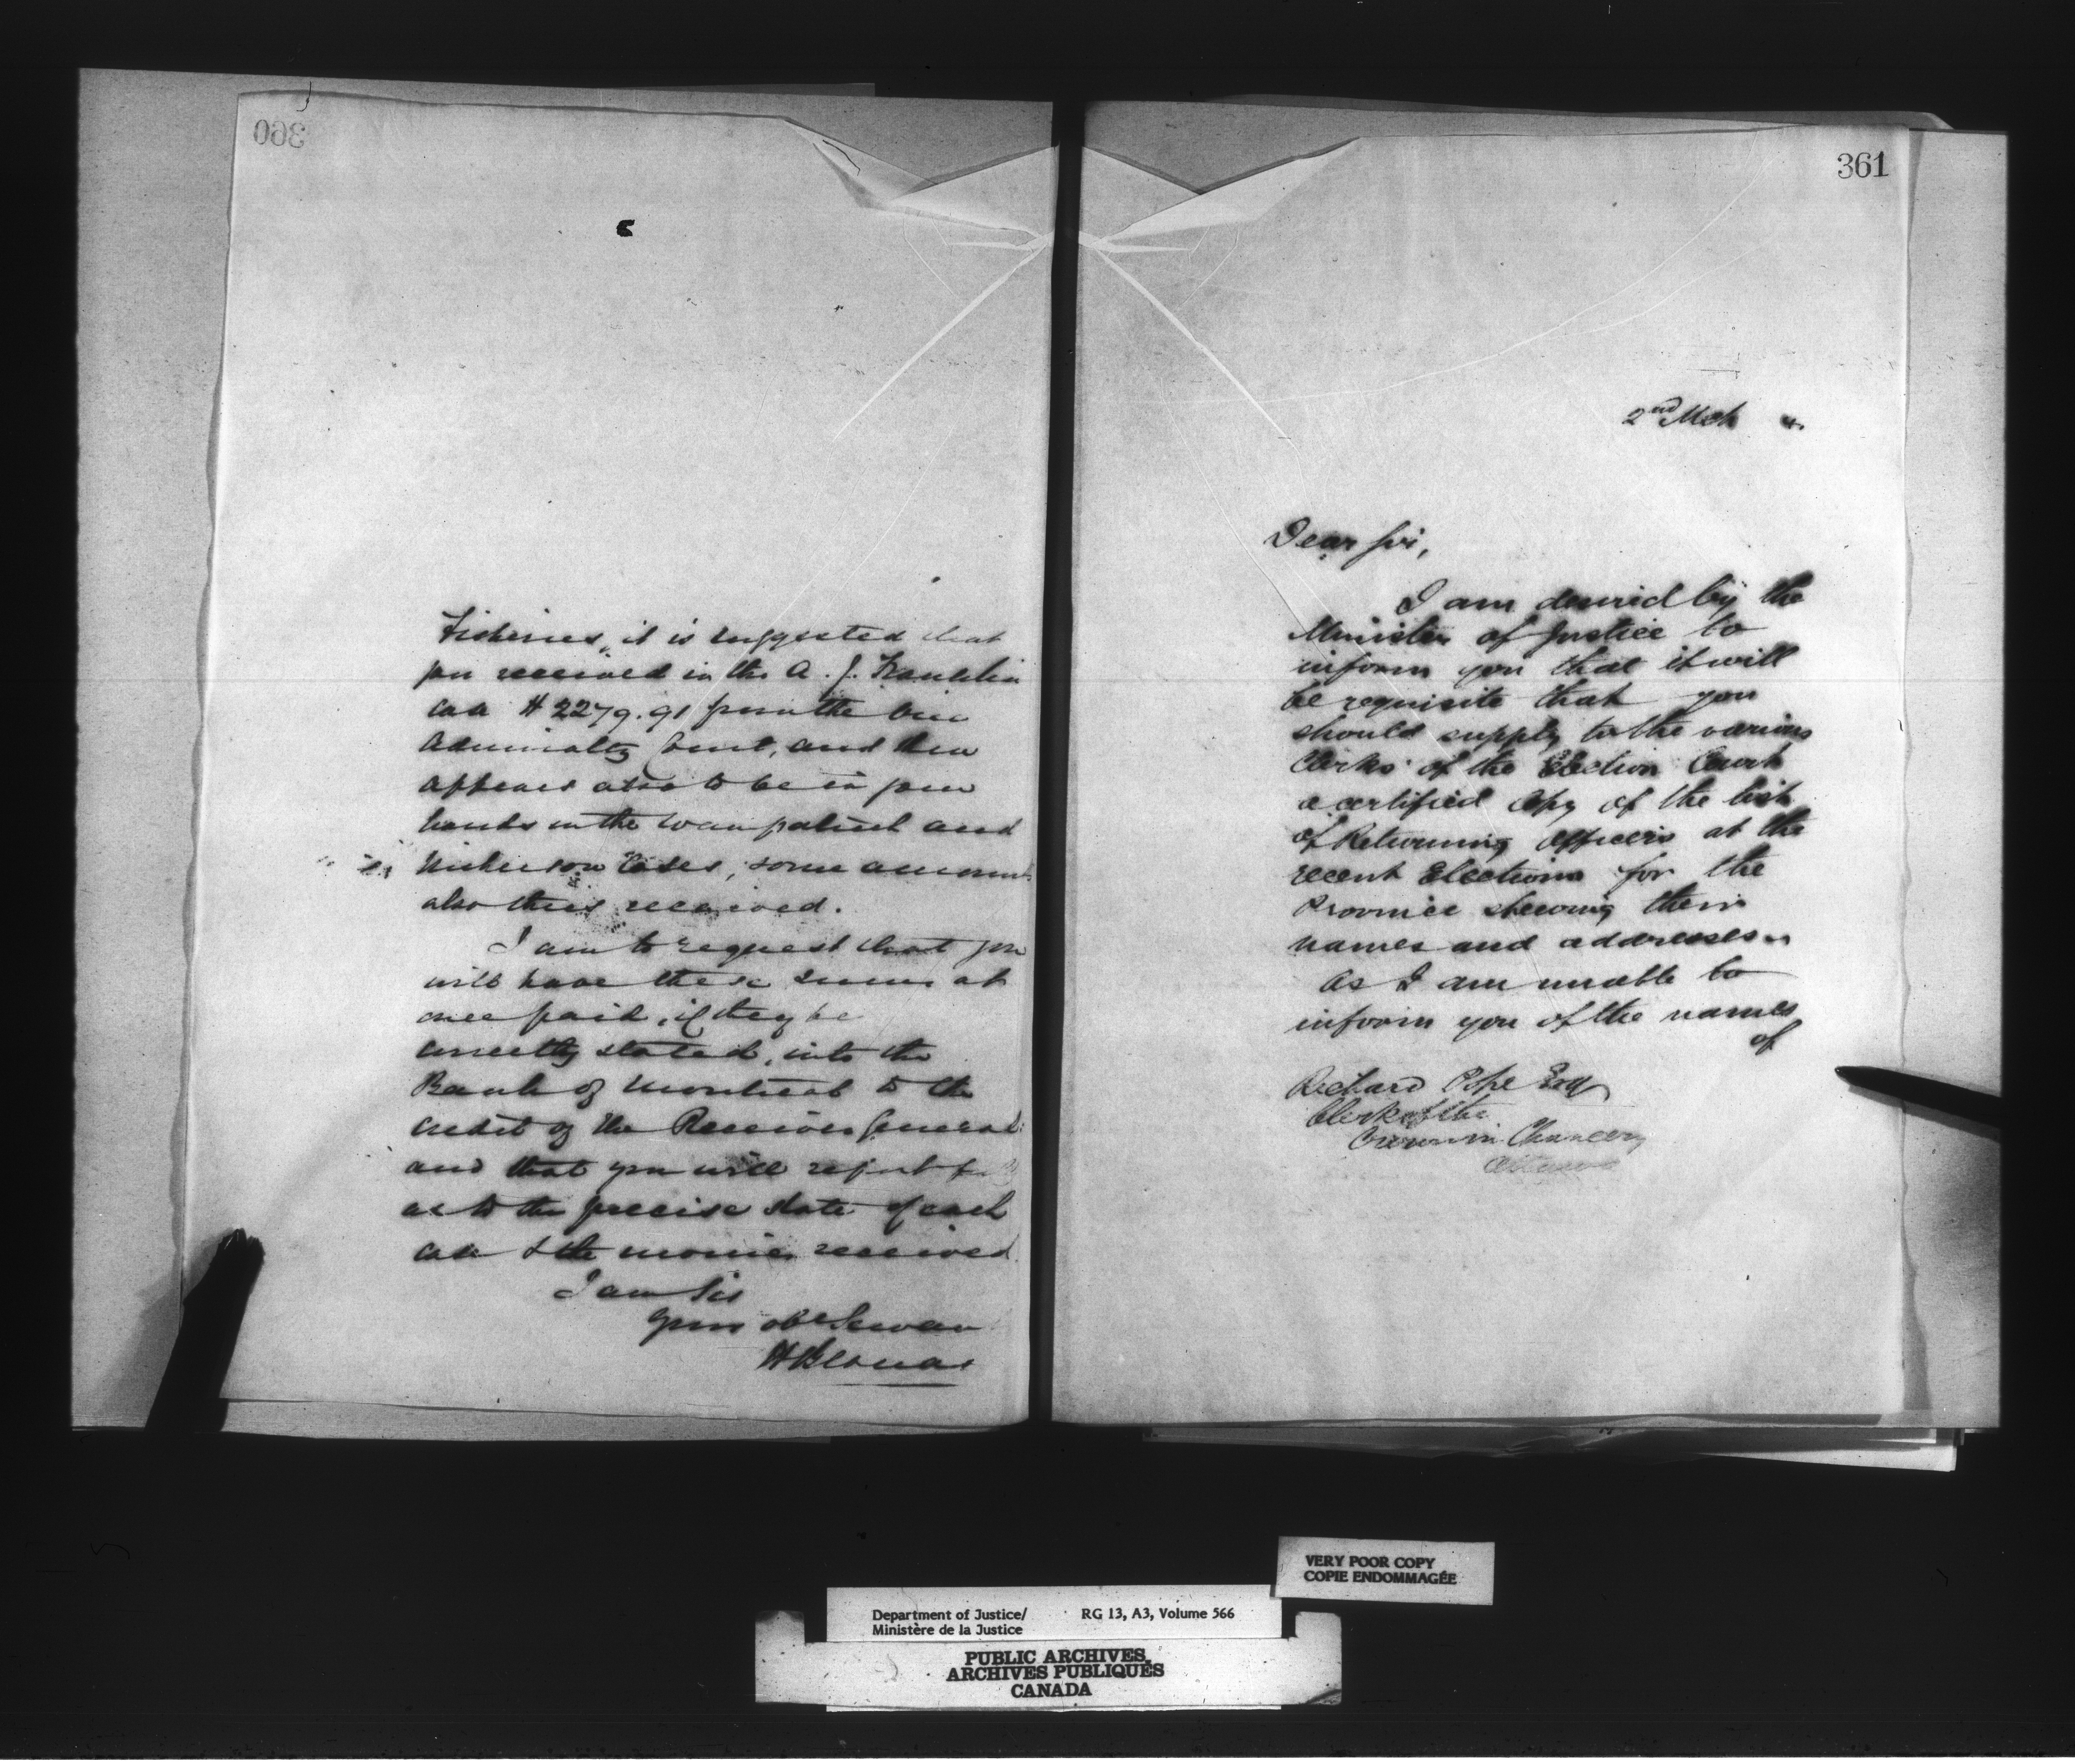 360
Fisheries, it is suggested that
you received in the A. J. Franklin
case $2279.91 from the Vice
Admiralty Court, and there
appears also to be in your
hands in the Wampatuck and
Nickerson Cases, some amount
also thus received.
I am to request that you
will have these sums at
once paid, if they be
correctly stated, into the
Bank of Montreal to the
credit of the Receiver General
and that you will report
as to the precise state of each
case & the monies received
I am Sir
Your obt Servant
H Bernard
361
2nd Mch 4.
Dear Sir,
I am desired by the
Minister of Justice to
inform you that it will
be requisite that you
should supply to the various
Clerks of the Election Court
a certified Copy of the list
of Returning Officers at the
recent Elections for the
Province shewing their
names and addresses.
As I am unable to
inform you of the names
of
Richard Pope Esq
Clerk of the
Crown in Chancery
Ottawa
VERY POOR COPY
COPIE ENDOMMAGÉE
Department of Justice/ RG 13, A3, Volume 566
Ministère de la Justice
PUBLIC ARCHIVES
ARCHIVES PUBLIQUES
CANADA